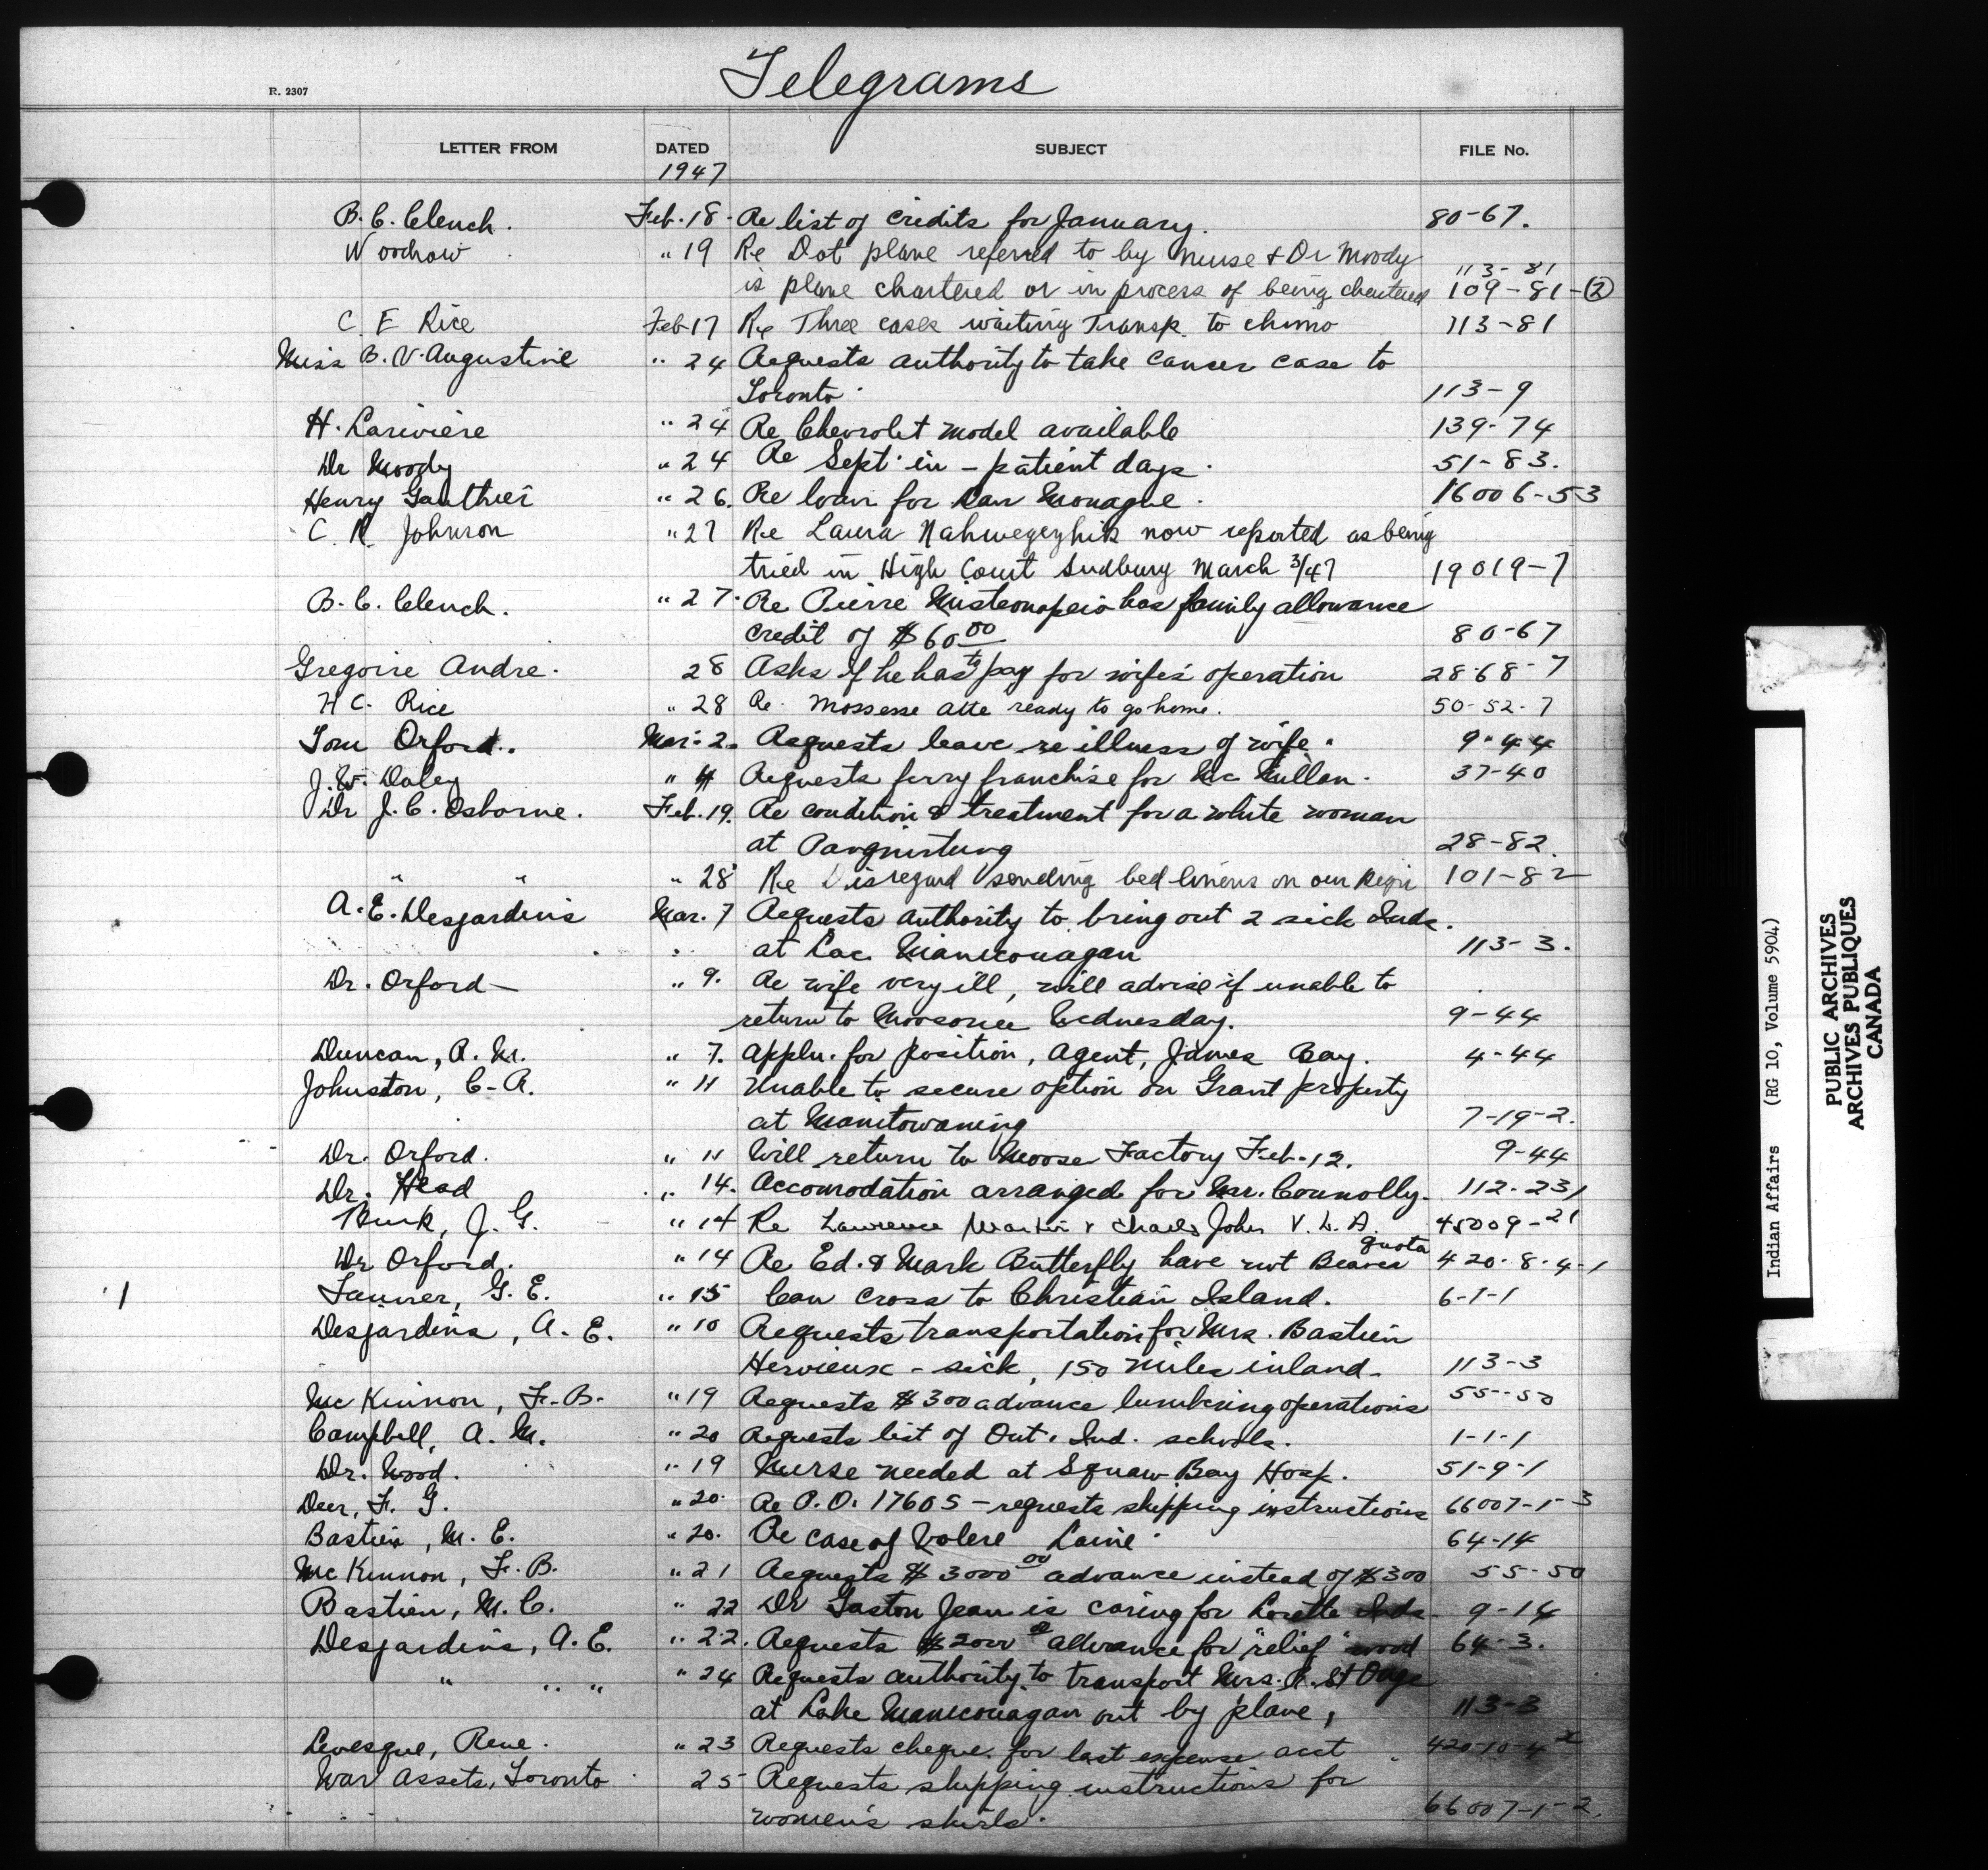 Telegrams
R. 2307
LETTER FROM DATED SUBJECT FILE No.
1947
B. C. Clench. Feb. 18 - Re list of credits for January. 80-67.
Woodrow " 19 Re Dot plane referred to by nurse & Dr Moody 113-81
is plane chartered or in process of being chartered 109-81-(2)
C. E Rice Feb 17 Re Three cases waiting Transp. to chimo 113-81
Miss B. V. Augustine " 24 Requests authority to take cancer case to
Toronto. 113-9
H. Lariviere " 24 Re Chevrolet model available 139-74
Dr Moody " 24 Re Sept. in-patient days. 51-83.
Henry Gauthier " 26. Re loan for Dan Monague. 16006-53
C. R. Johnson " 27 Re Laura Nahwegezhik now reported as being
tried in High Court Sudbury March 3/47 19019-7
B. C. Clench. " 27. Re Pierre has family allowance
credit of $60 00 80-67
Gregoire Andre. 28 Asks if he has to pay for wife's operation 28-68-7
H C. Rice " 28 Re. Mossesse atte ready to go home. 50-52-7
Tom Orford. Mar. 2. Requests leave re illness of wife. 9-44
J. W. Daley " 4 Requests ferry franchise for Mc Mullan. 37-40
Dr J. C. Osborne. Feb. 19. Re condition & treatment for a white woman
at Pangnirtung 28-82.
" " " 28 Re Disregard sending bed linens on our 101-82
A. E. Desjardins Mar. 7 Requests authority to bring out 2 sick Inds.
at Lac Manicouagan 113-3.
Dr. Orford - " 9. Re wife very ill, will advise if unable to
return to Moosonee Wednesday. 9-44
Duncan, R. M. " 7. Appln. for position, Agent, James Bay. 4-44
Johnston, C. R. " 11 Unable to secure option on Grant property
at Manitowaning 7-19-2.
Dr. Orford. " 11 Will return to Moose Factory Feb. 12. 9-44
Dr. Head " 14. Accomodation arranged for Mr. Connolly. 112-231
J. G. " 14 Re Lawrence Martin & Charles John V. L. A. 45009-21
Dr Orford. " 14 Re Ed. & Mark Butterfly have not Beaver quota 420-8-4-1
G. E. " 15 Can cross to Christian Island. 6-1-1
Desjardins, A. E. " 10 Requests transportation for Mrs. Bastien
Hervieux - sick, 150 miles inland. 113-3
Mc Kinnon, F. B. " 19 Requests $300 advance lumbering operations 55-50
Campbell, A. M. " 20 Requests list of Ont. Ind. schools. 1-1-1
Dr. Wood. " 19 Nurse needed at Squaw Bay Hosp. 51-9-1
Deer, F. G. " 20. Re P.O. 17605 - requests shipping instructions 66007-1-3
Bastien, M. E. " 20. Re case of Valere Laine 64-14
Mc Kinnon, F. B. " 21 Requests $3000 00 advance instead of $300 55-50
Bastien, M. E. " 22 Dr Gaston Jean is caring for Lorette Inds. 9-14
Desjardins, A. E. " 22. Requests $2000 advance for "relief" wood 64-3.
" " " " 24 Requests authority to transport Mrs. A. St Onge
at Lake Manicouagan out by plane, 113-3
Levesque, Rene. " 23 Requests cheque for last expense acct. 420-10-4 x
War Assets, Toronto 25 Requests shipping instructions for
women's skirts. 66007-1-2.
1
Indian Affairs (RG 10, Volume 5904)
PUBLIC ARCHIVES
ARCHIVES PUBLIQUES
CANADA